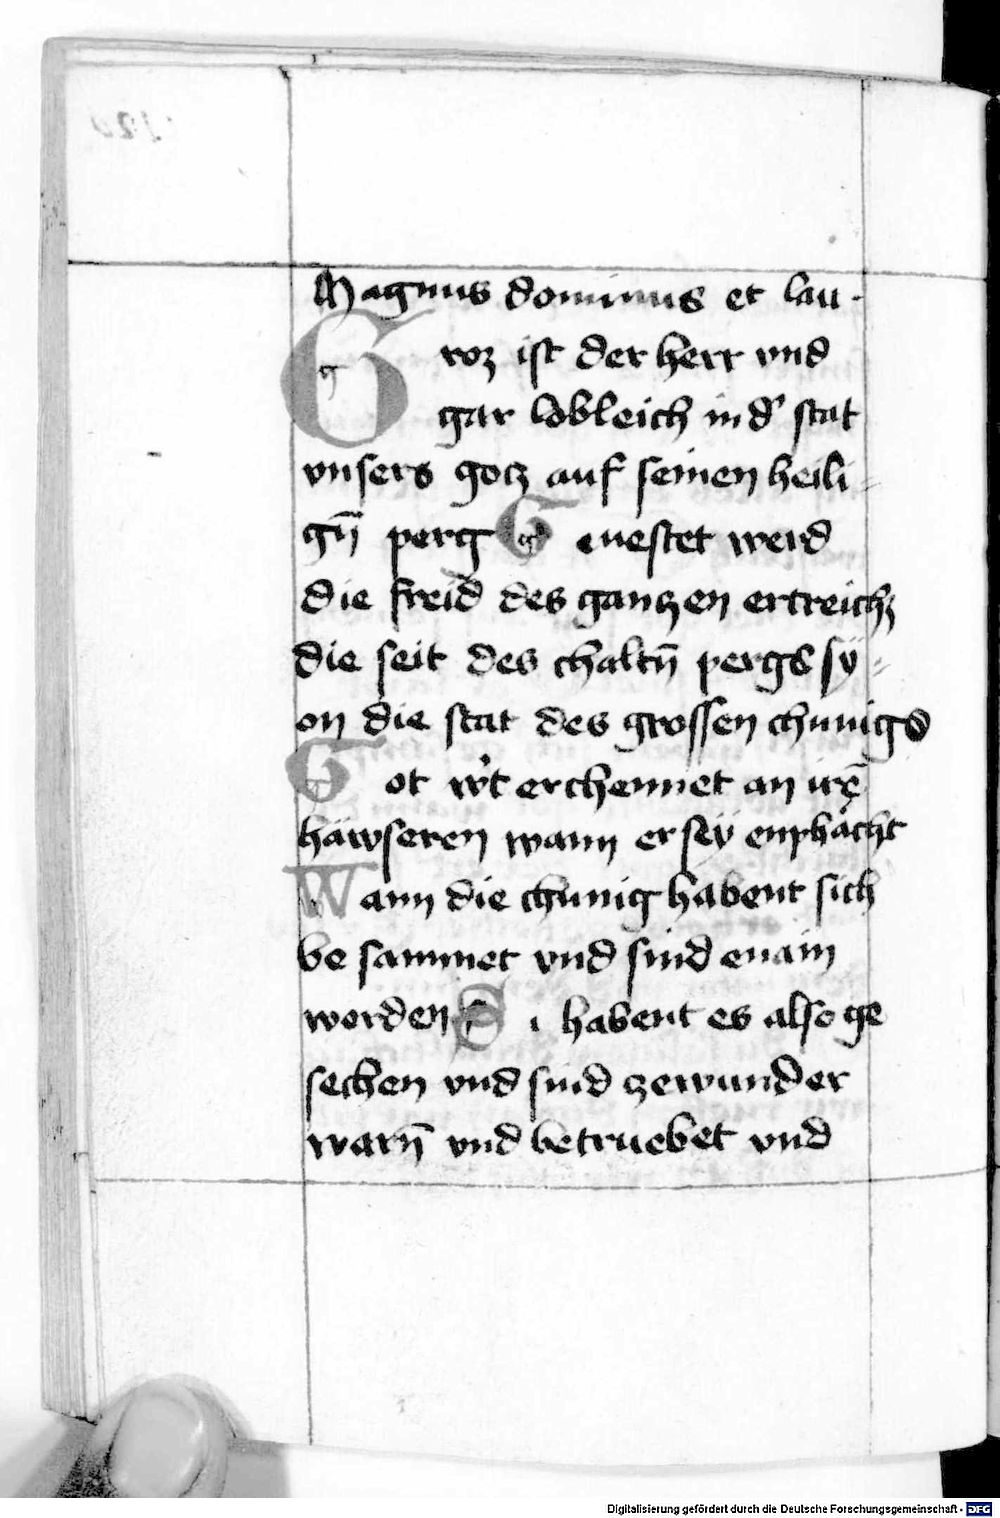 Magnus dominus et lau-
Groz ist der herr vnd
gar lobleich in d' stat
vnsers gotz auf seinen heili-
gn̄ perg Geuestet werd
die freid des gantzen ertreichz
die seit des chaltn̄ pergs sy-
on die stat des grossen chunigs
Got w't erchennet an irē
häwseren wann er sey enphächt
Wann die chunig habent sich
be sammet vnd sind enain
worden Si habent es also ge
sechen vnd sind zewunder
warn̄ vnd betruebet vnd
Digitalisierung gefördert durch die Deutsche Forschungsgemeinschaft - DFG